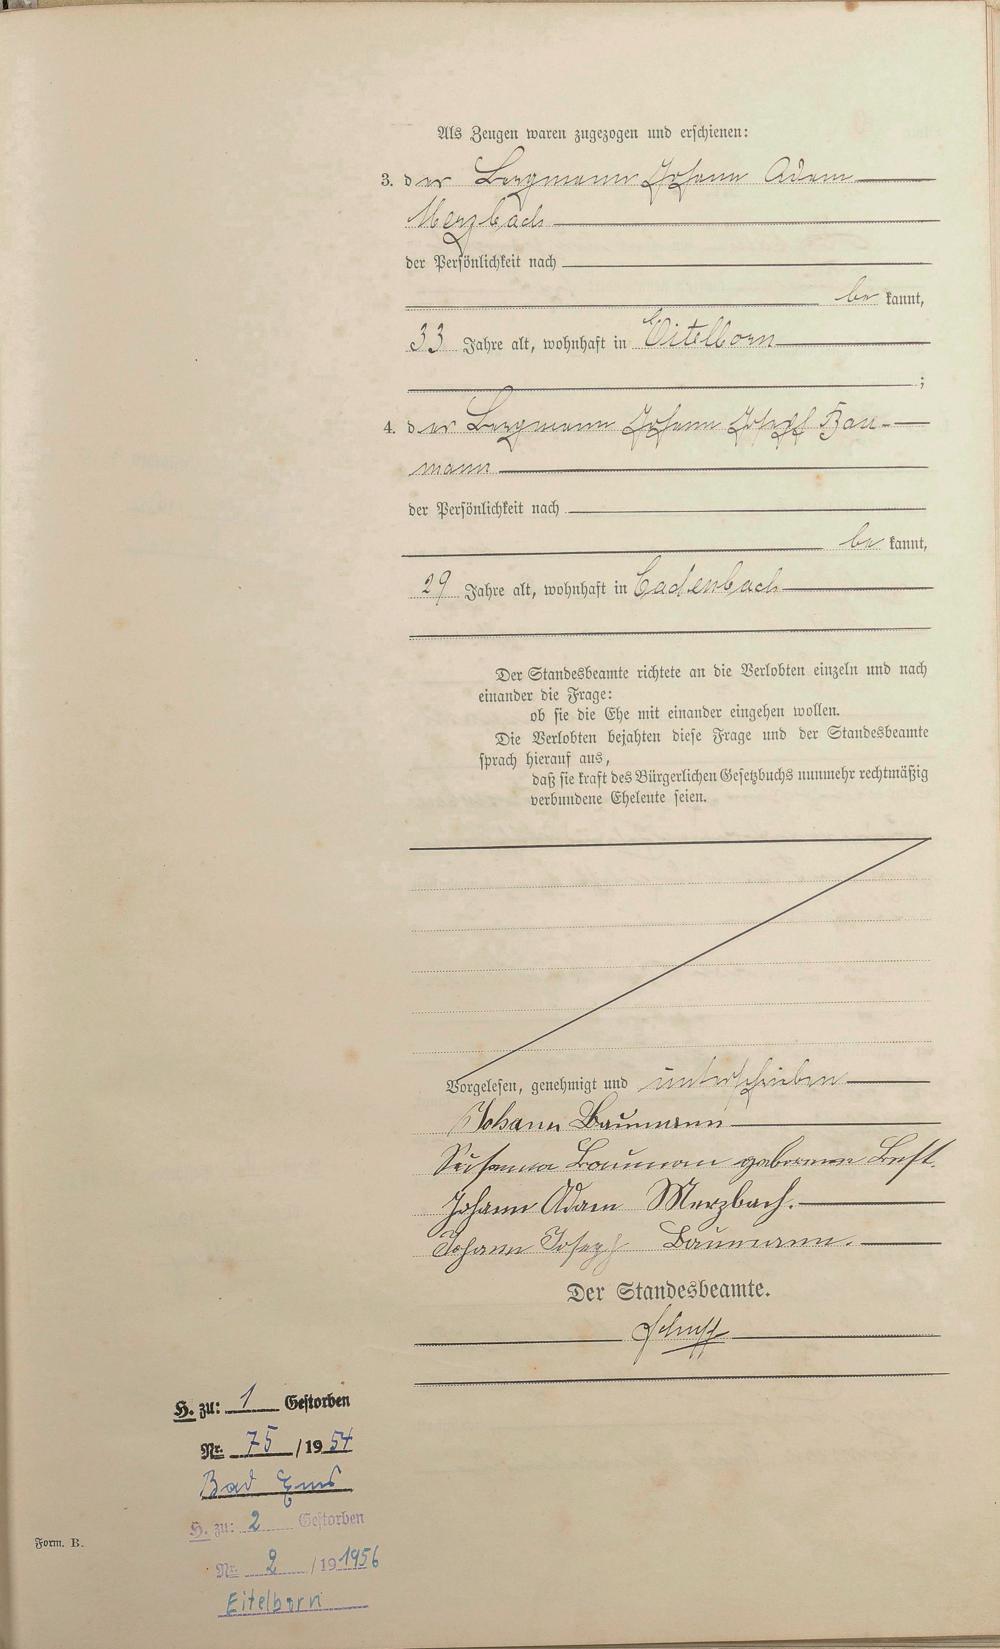 Als Zeugen waren zugezogen und erschienen:
3. der Bergmann Johann Adam
Merzbach
der Persönlichkeit nach
be kannt,
33 Jahre alt, wohnhaft in Eitelborn
;
4. der Bergmann Johann Joseph Bau-
mann
der Persönlichkeit nach
be kannt,
29 Jahre alt, wohnhaft in Cadenbach
Der Standesbeamte richtete an die Verlobten einzeln und nach
einander die Frage:
ob sie die Ehe mit einander eingehen wollen.
Die Verlobten bejahten diese Frage und der Standesbeamte
sprach hierauf aus,
daß sie kraft des Bürgerlichen Gesetzbuchs nunmehr rechtmäßig
verbundene Eheleute seien.
Vorgelesen, genehmigt und unterschrieben
Johann Baumann
Susanna Bauman geborene
Johann Adam Merzbach.
Johann Joseph Baumann.
Der Standesbeamte.
H. zu: 1 Gestorben
Nr. 75 /1954
Bad Ems
H. zu: 2 Gestorben
Nr. 2 /19 1956
Eitelborn
Form. B.